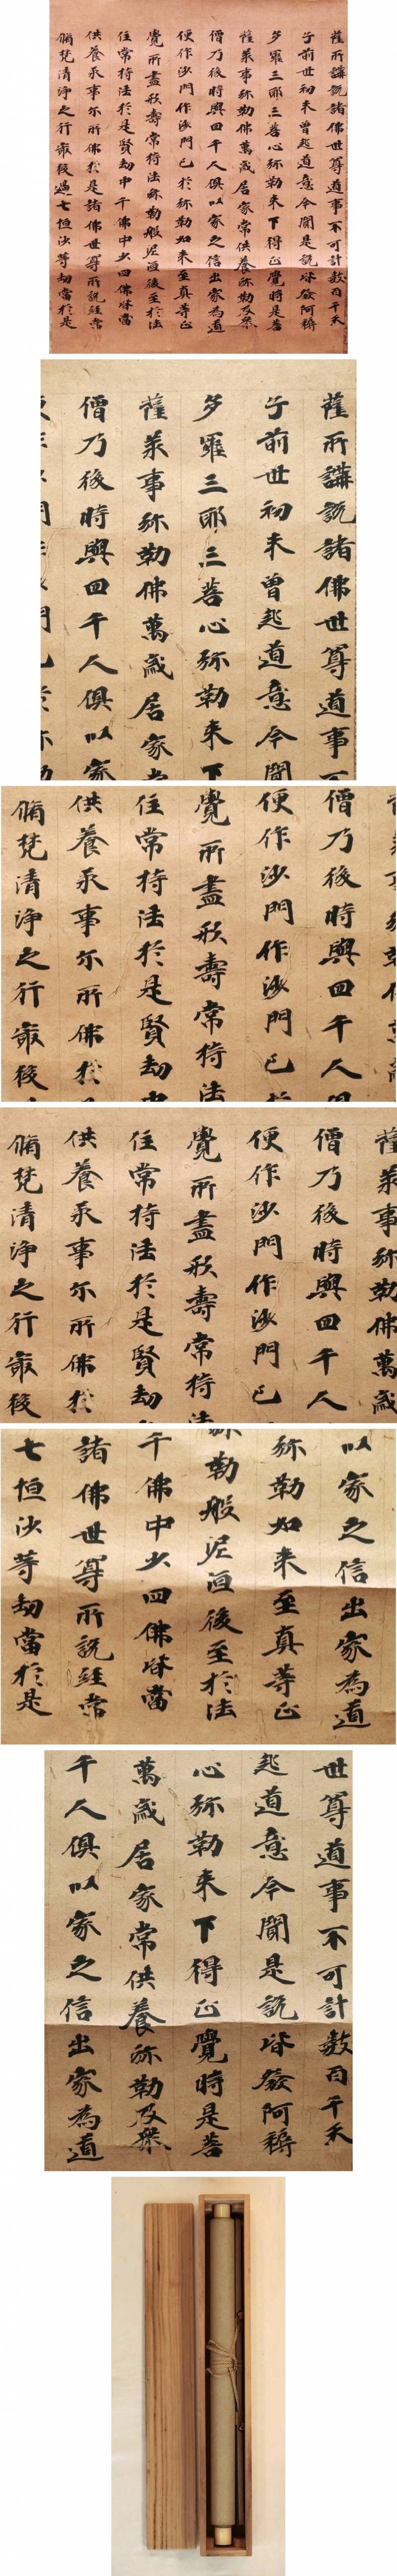 薩所講說諸佛世尊道事不可計數百千天
子前世初未曾起道意今聞是說皆發阿耨
多羅三耶三菩心弥勒來下得正覺時是菩
薩承事弥勒佛萬歲居家常供養弥勒及衆
僧乃後時與四千人俱以家之信出家為道
便作沙門作沙門已於弥勒如來至真等正
覺所盡形壽常持法弥勒般泥洹後至於法
住常持法於是賢劫中千佛中少四佛皆當
供養承事尒所佛於是諸佛世尊所說經常
脩梵清淨之行最後過七恒沙等劫當於是
薩所講說諸佛世尊道事不
子前世初未曾起道意今聞
多羅三耶三菩心弥勒來下
薩承事弥勒佛萬歲居家常
僧乃後時與四千人俱以家
僧乃後時與四千人俱
便作沙門作沙門已於
覺所盡形壽常持法
住常持法於是賢劫中
供養承事尒所佛於
脩梵清淨之行最後
薩承事弥勒佛萬歲
僧乃後時與四千人
便作沙門作沙門已
覺所盡形壽常持法
住常持法於是賢劫
供養承事尒所佛於
脩梵清淨之行最後
以家之信出家為道
弥勒如來至真等正
弥勒般泥洹後至於法
千佛中少四佛皆當
諸佛世尊所說經常
七恒沙等劫當於是
世尊道事不可計數百千天
起道意今聞是說皆發阿耨
心弥勒來下得正覺時是菩
萬歲居家常供養弥勒及衆
千人俱以家之信出家為道